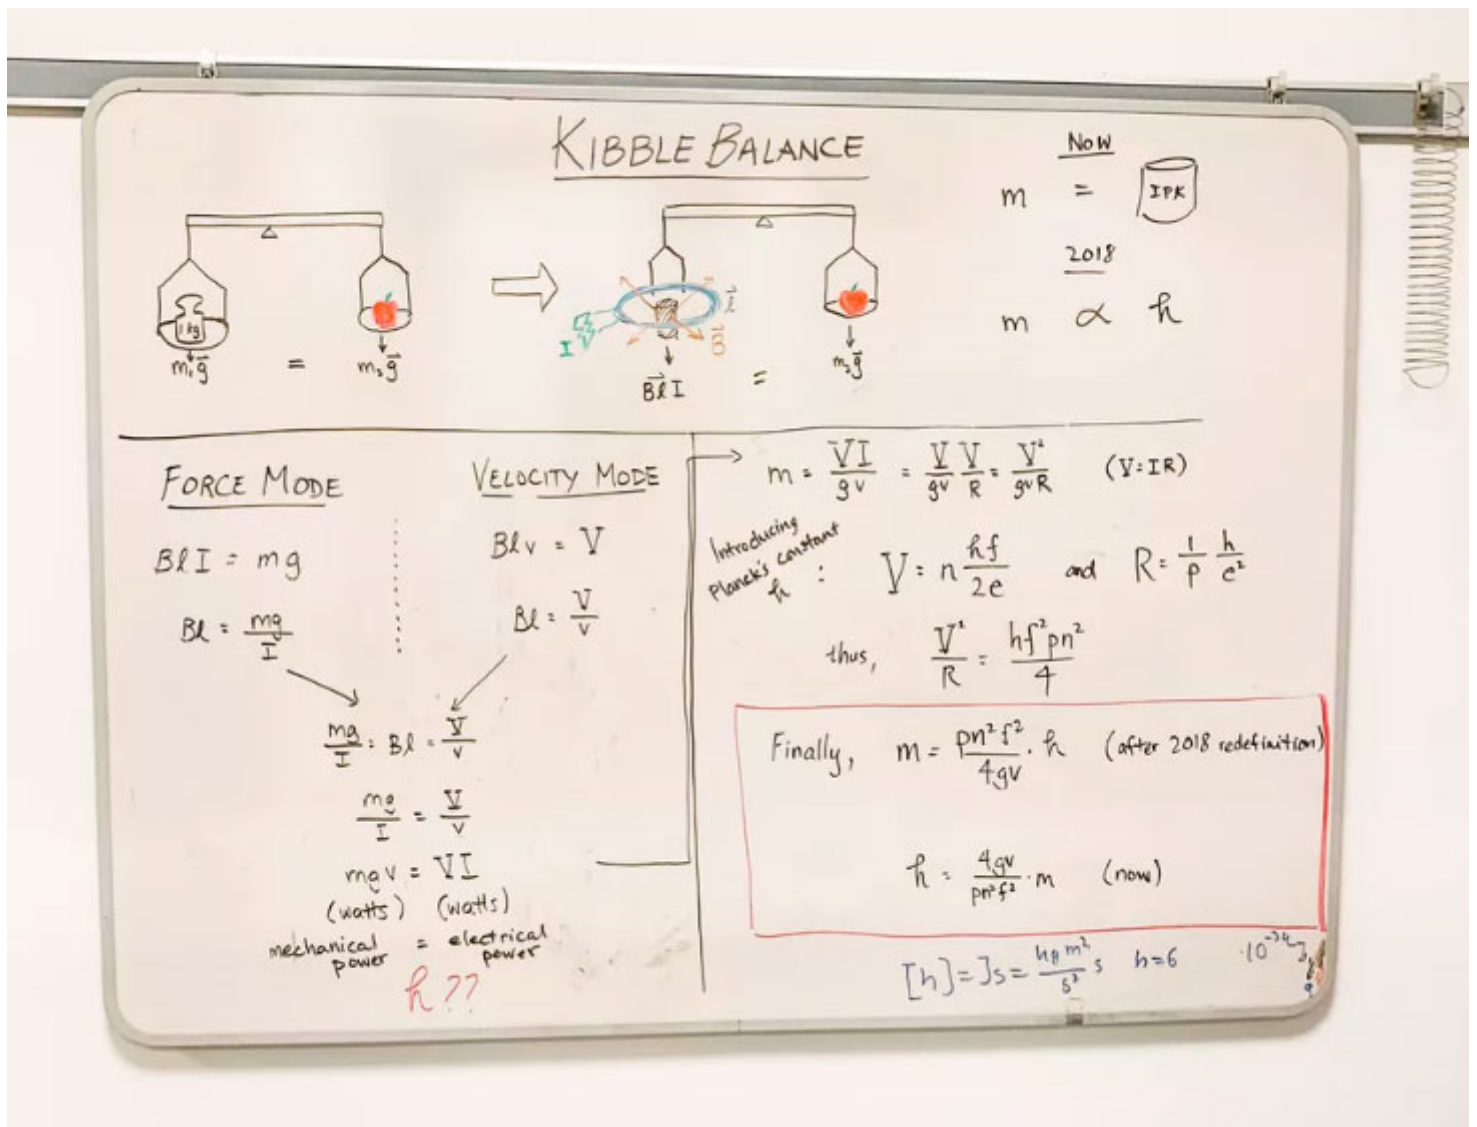 KIBBLE BALANCE
1 kg
m₁g⃗ = m₂g⃗
I
l⃗
B⃗
B⃗lI = m₂g⃗
Now
m = IPK
2018
m ∝ h
FORCE MODE
BlI = mg
Bl = mg/I
VELOCITY MODE
Blv = V
Bl = V/v
mg/I = Bl = V/v
mg/I = V/v
mgv = VI
(watts) (watts)
mechanical power = electrical power
h??
m = VI/gv = V/gv V/R = V²/gvR (V=IR)
Introducing
Planck's constant
h :
V = n hf/2e and R = 1/p h/e²
thus, V²/R = hf²pn²/4
Finally, m = pn²f²/4gv · h (after 2018 redefinition)
h = 4gv/pn²f² · m (now)
[h] = Js = kg m²/s² s h=6 ·10⁻³⁴ J